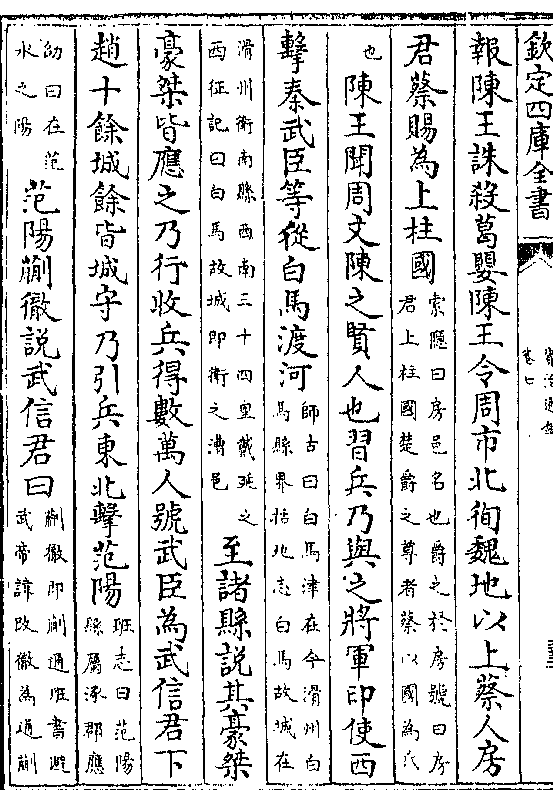 欽定四庫全書
卷七
報陳王誅殺葛嬰陳王令周市北徇魏地以上蔡人房
君蔡賜為上柱國
索隱曰房邑名也爵之於房號曰房
君上柱國楚爵之尊者蔡以國為氏
也
陳王聞周文陳之賢人也習兵乃與之將軍印使西
擊秦武臣等從白馬渡河
師古曰白馬津在今滑州白
馬縣界括地志白馬故城在
滑州衛南縣西南三十四里戴延之
西征記曰白馬故城即衛之漕邑
至諸縣說其豪桀
豪桀皆應之乃行收兵得數萬人號武臣為武信君下
趙十餘城餘皆城守乃引兵東北擊范陽
班志曰范陽
縣屬涿郡應
劭曰在范
水之陽
范陽蒯徹說武信君曰
蒯徹即蒯通班書避
武帝諱改徹為通蒯